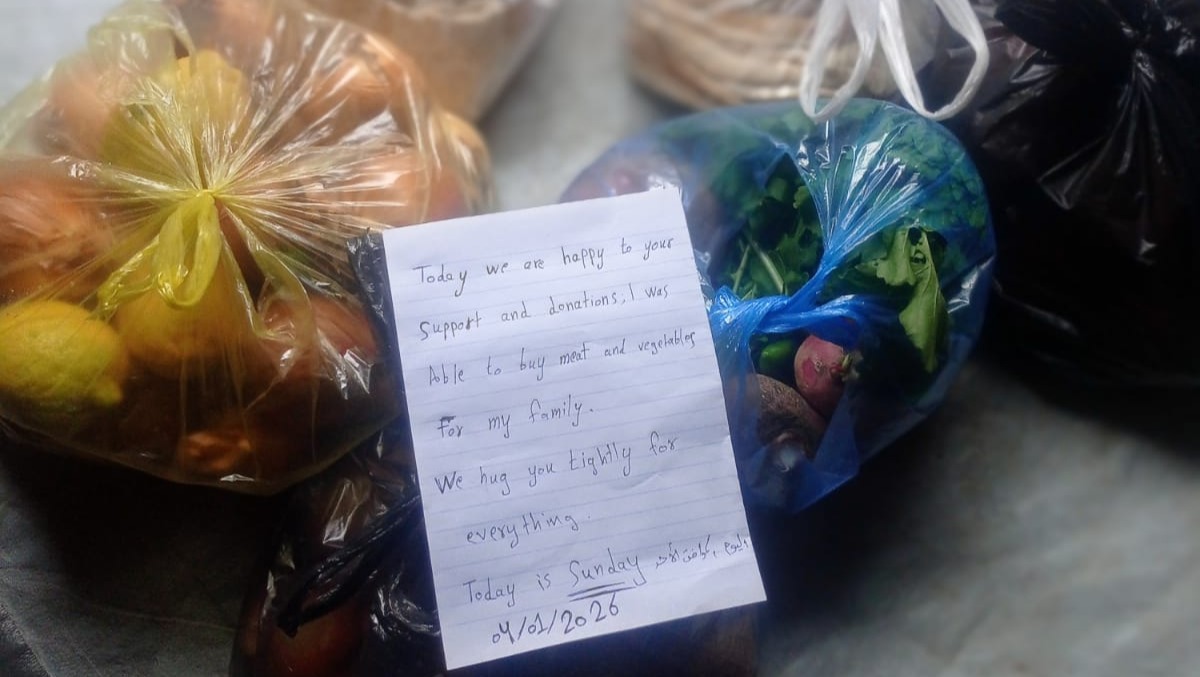 Today we are happy to your
support and donations, I was
Able to buy meat and vegetables
For my family.
We hug you tightly for
everything.
Today is Sunday اليوم
04/01/2026